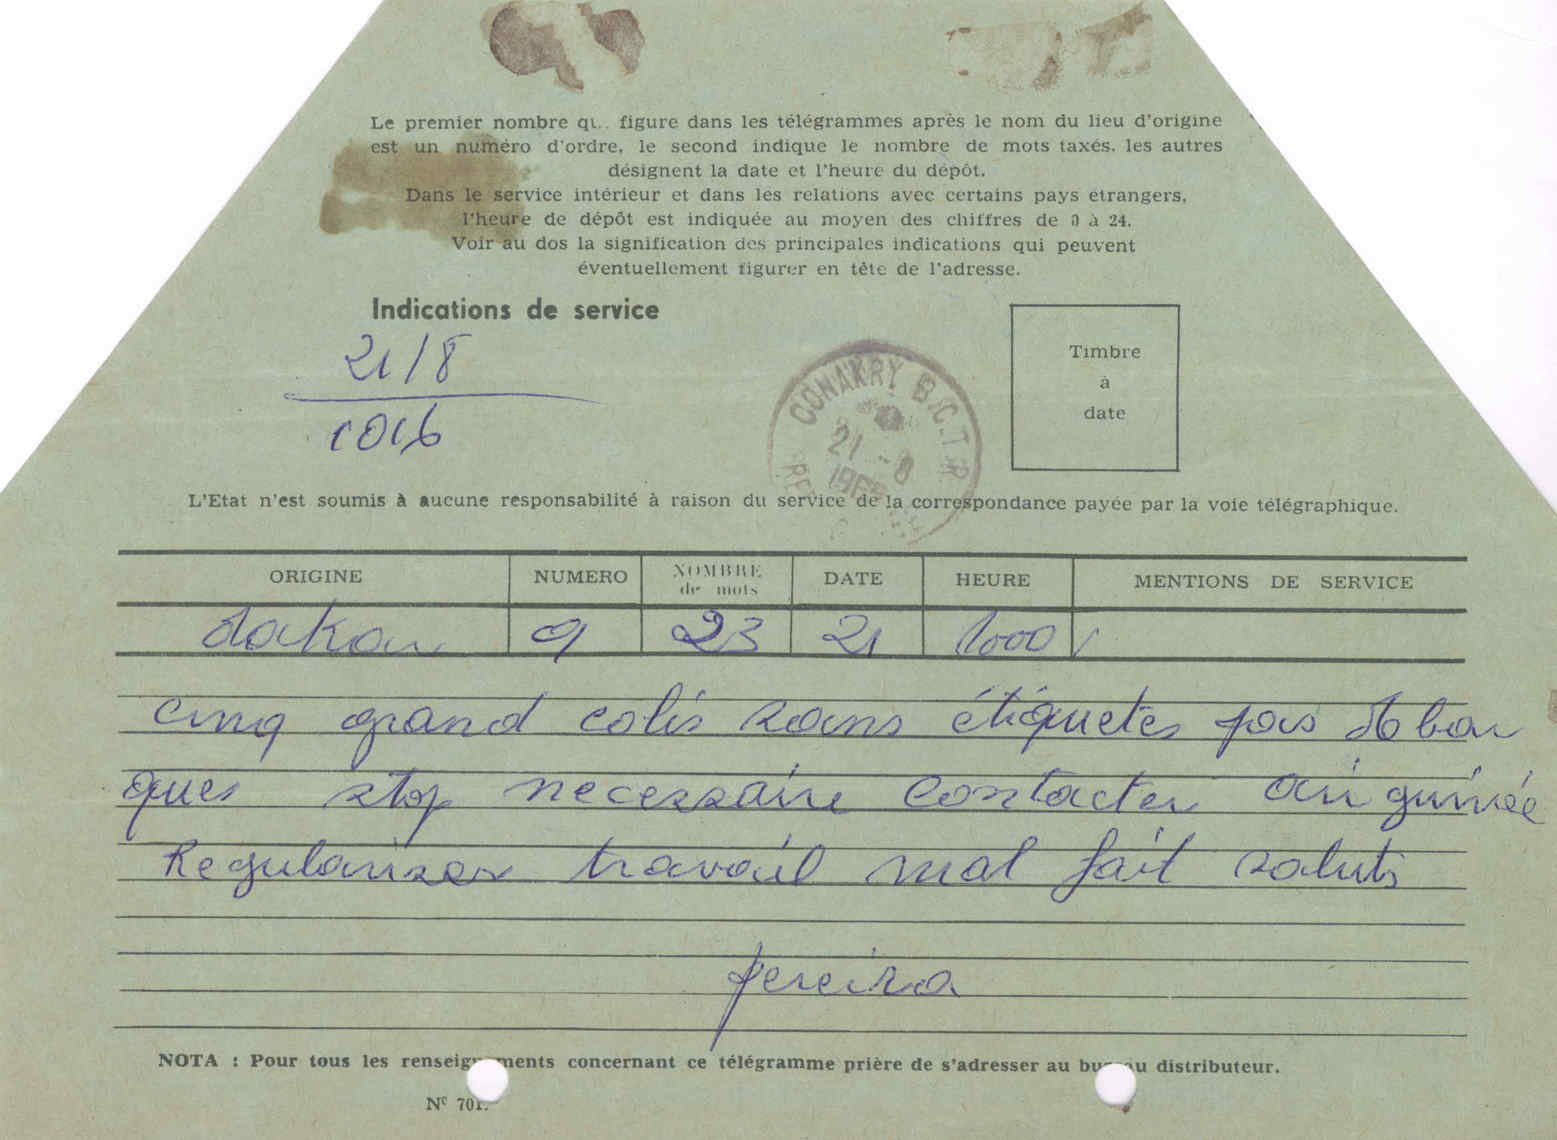 Le premier nombre qu. figure dans les télégrammes après le nom du lieu d'origine
est un numéro d'ordre, le second indique le nombre de mots taxés. les autres
désignent la date et l'heure du dépôt.
Dans le service intérieur et dans les relations avec certains pays étrangers,
l'heure de dépôt est indiquée au moyen des chiffres de 0 à 24.
Voir au dos la signification des principales indications qui peuvent
éventuellement figurer en tête de l'adresse.
Indications de service
21/8
1016
CONAKRY B.C.T.R
21 -8
Timbre
à
date
L'Etat n'est soumis à aucune responsabilité à raison du service de la correspondance payée par la voie télégraphique.
ORIGINE NUMERO NOMBRE de mots DATE HEURE MENTIONS DE SERVICE
dakar 9 23 21 1000
cinq grand colis sans étiquetes pas
ques stop necessaire contacter air guinée
Regulariser travail mal fait saluts
pereira
NOTA : Pour tous les renseignements concernant ce télégramme prière de s'adresser au bureau distributeur.
N° 701.